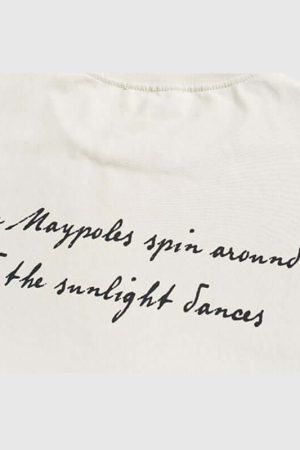 Maypoles spin around
the sunlight dances